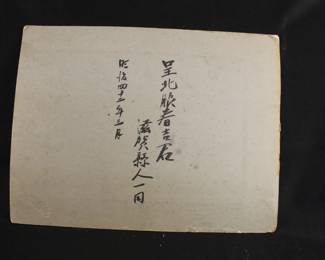 呈北脇春吉君
滋賀縣人一同
明治四十二年三月